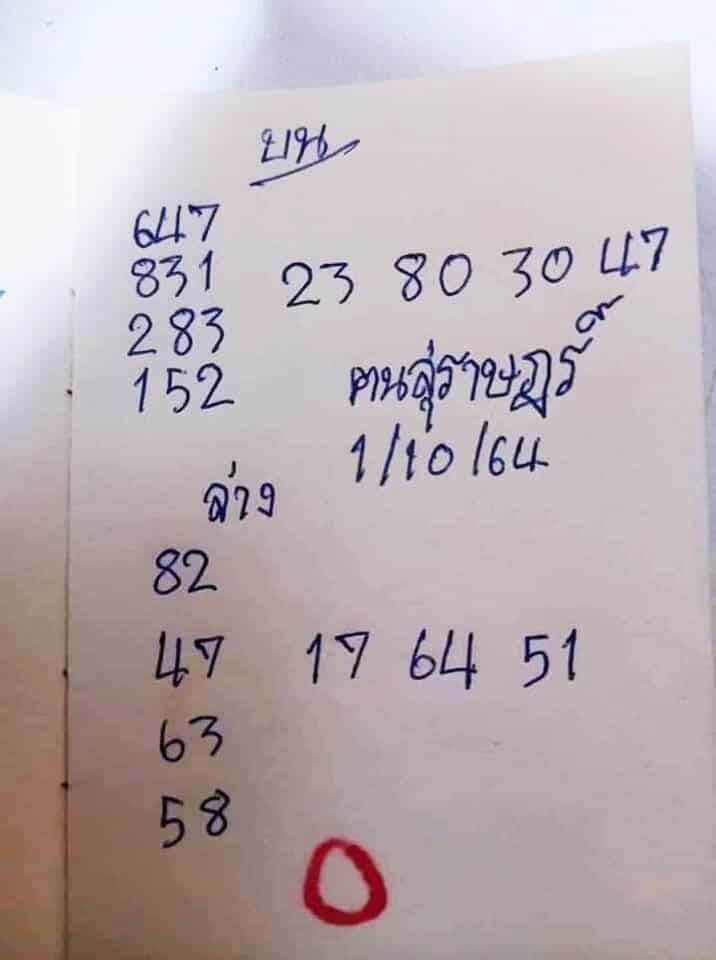 บน
647
831 23 80 30 47
283
152 คนสุราษฎร์
1/10/64
ล่าง
82
47 17 64 51
63
58
0